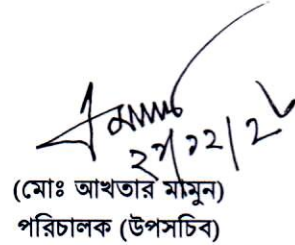 ২৭/১২/২৮
(মোঃ আখতার মামুন)
পরিচালক (উপসচিব)